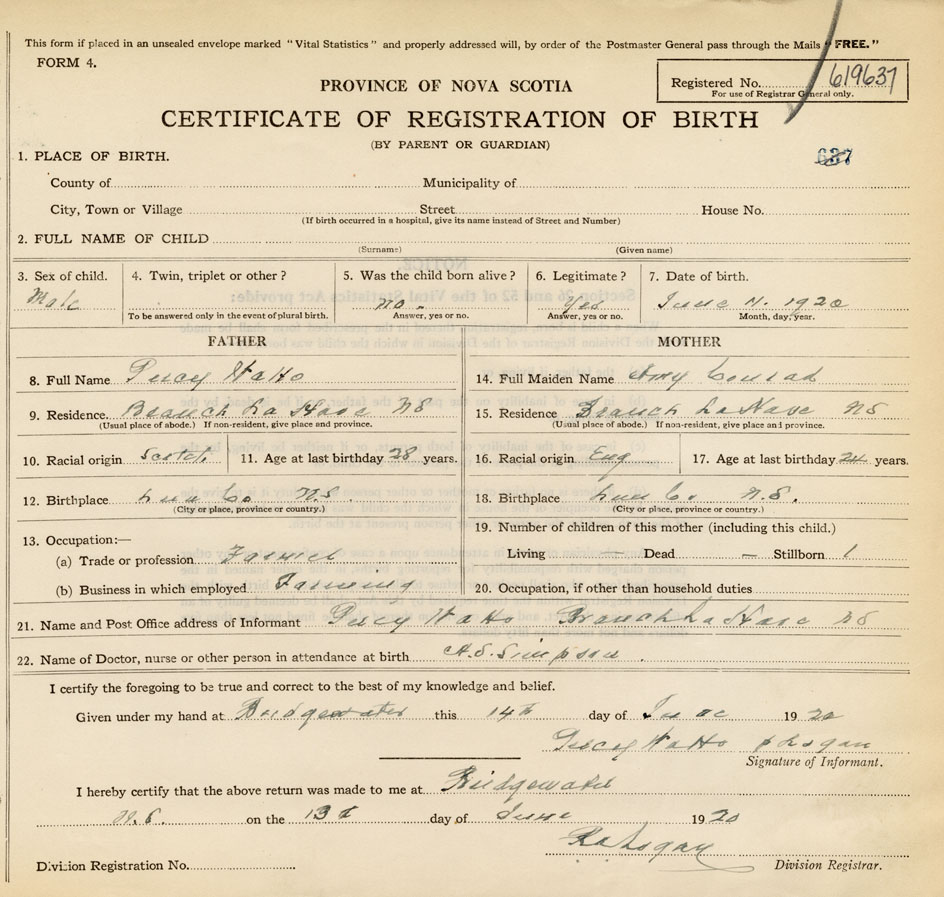 This form if placed in an unsealed envelope marked "Vital Statistics" and properly addressed will, by order of the Postmaster General pass through the Mails "FREE."
FORM 4.
PROVINCE OF NOVA SCOTIA
Registered No. 619637
For use of Registrar General only.
CERTIFICATE OF REGISTRATION OF BIRTH
(BY PARENT OR GUARDIAN)
637
1. PLACE OF BIRTH.
County of Municipality of
City, Town or Village Street House No.
(If birth occurred in a hospital, give its name instead of Street and Number)
2. FULL NAME OF CHILD
(Surname) (Given name)
3. Sex of child. 4. Twin, triplet or other? 5. Was the child born alive? 6. Legitimate? 7. Date of birth.
Male no. Yes June 11. 1920
To be answered only in the event of plural birth. Answer, yes or no. Answer, yes or no. Month, day, year.
FATHER MOTHER
8. Full Name Percy 14. Full Maiden Name Amy Conrad
9. Residence Branch La Have NS 15. Residence Branch LaHave NS
(Usual place of abode.) If non-resident, give place and province. (Usual place of abode.) If non-resident, give place and province.
10. Racial origin Scotch 11. Age at last birthday 28 years. 16. Racial origin Eng 17. Age at last birthday 24 years.
12. Birthplace Lun Co N.S. 18. Birthplace Lun Co. N.S.
(City or place, province or country.) (City or place, province or country.)
13. Occupation:— 19. Number of children of this mother (including this child.)
(a) Trade or profession Farmer Living — Dead — Stillborn 1
(b) Business in which employed Farming 20. Occupation, if other than household duties
21. Name and Post Office address of Informant Percy Branch LaHave NS
22. Name of Doctor, nurse or other person in attendance at birth A.S. Simpson
I certify the foregoing to be true and correct to the best of my knowledge and belief.
Given under my hand at Bridgewater this 14th day of June 1920
Percy Logan
Signature of Informant.
I hereby certify that the above return was made to me at Bridgewater
N.S. on the day of June 1920
Logan
Division Registration No. Division Registrar.